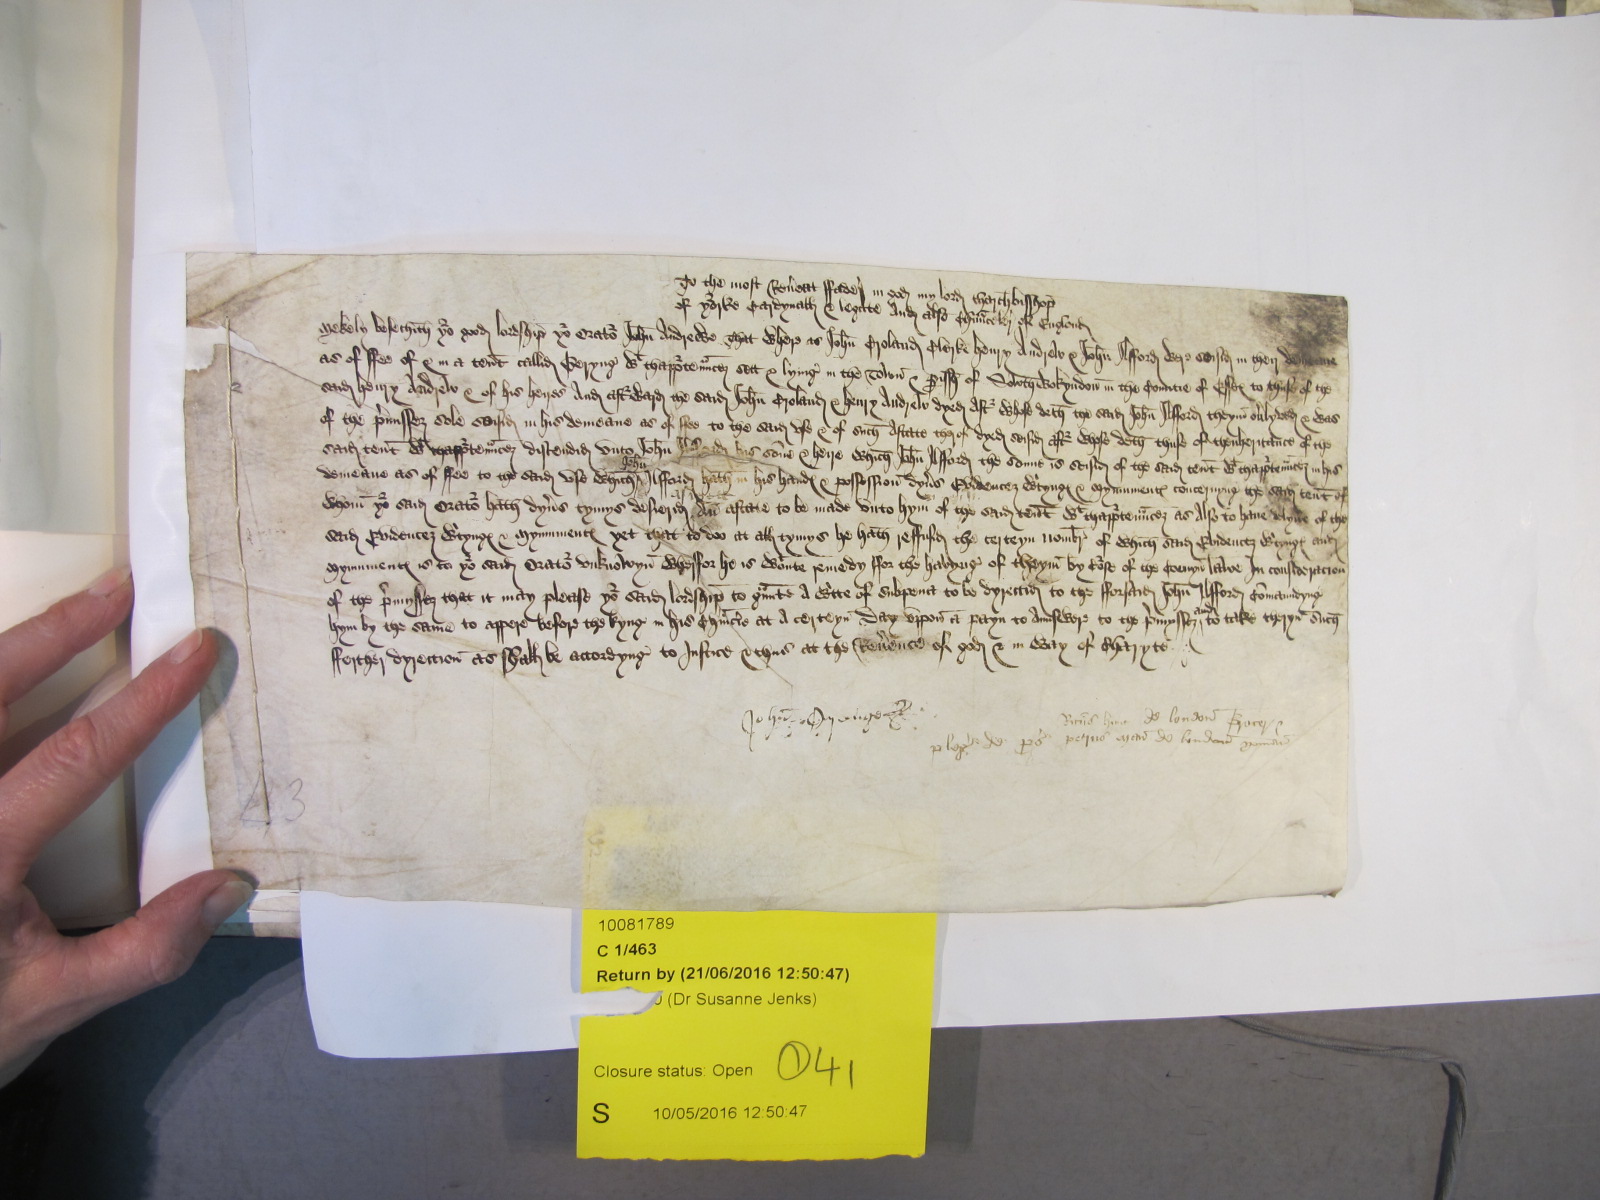 To the most Reuerent ffader in god my lord tharchbisshop
of yorke Cardynall & legate And also Chaunceler of England
Mekely besechith yor good lordship yor orator John Andrewe That where as John Croland Clerke henry Andrew & John Ilfford were seisid in their demeane
as of ffee of & in a tent callid wt thapportenncez sett & lying in the Town & parish of Sowth Wokyndon in the Countie of Essex to thuse of the
said henry Andrew & of his heyres And aftrward the said John Croland & henry Andrew dyed aftr whose deth the said John Ilfford theym ouerlyved & was
of the premissez sole seisid in his demeane as of ffee to the said vse & of such Astate therof dyed seisid aftr whose deth thuse of thenheritance of the
said tent wt thapportenncez discendid vnto John Ilfford his sone & heire which John Ilfford the sonne is seisid of the said tent wt thapportenncez in his
demeane as of ffee to the said vse which John Ilfford hath in his handes & possession dyuers Evidencez wrytynges & Mynumentes concernyng the said tent of
whom yor said orator hath dyuers tymys desierid An astate to be made vnto hym of the said tent wt thapportenncez as Also to haue of the
said Evidencez wrytynges & Mynumentes yet that to doo at all tymys he hath reffusid the certeyn nombre of which said Evidencez wrytynges and
Mynumentes is to yor said orator vnknowyn wherffor he is wtoute remedy ffor the havyng of theym by Corse of the Comyn lawe In consideracion
of the premyssez that it may please yor said lordship to graunte A write of subpena to be dyrectid to the fforsaid John Ilfford Comaundyng
hym by the same to appere before the kyng in his Chauncerie at A certeyn Day vppon A payn to Aunswere to the premyssez and to take theryn such
fferther dyrection as shall be accordyng to Justice & thus at the Reuerence of god & in way of Charyte
John
de london
pleg de pros petrus de london
2
3
10081789
C 1/463
Return by (21/06/2016 12:50:47)
(Dr Susanne Jenks)
Closure status: Open ①41
S 10/05/2016 12:50:47